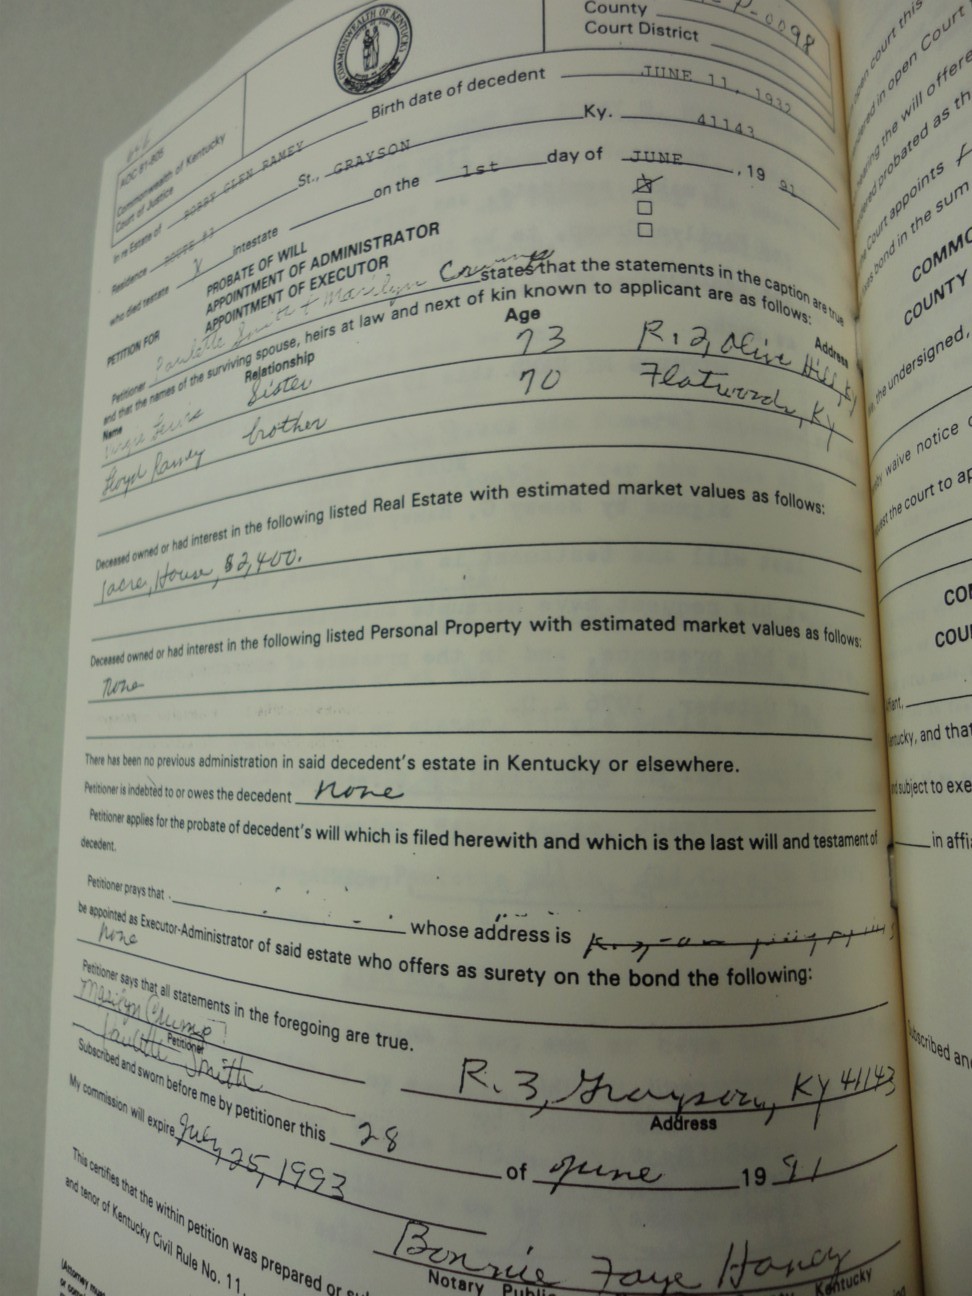 P-0098
COMMONWEALTH OF KENTUCKY
County
Court District
AOC P1-805
Commonwealth of Kentucky
Court of Justice
Birth date of decedent JUNE 11, 1932
In re Estate of BOBBY GLEN RAMEY
Residence ROUTE #1 St., GRAYSON Ky. 41143
who died testate X intestate on the 1st day of JUNE, 19 91
PETITION FOR
PROBATE OF WILL
APPOINTMENT OF ADMINISTRATOR
APPOINTMENT OF EXECUTOR
Petitioner Paulette Smith & Marilyn Crump states that the statements in the caption are true
and that the names of the surviving spouse, heirs at law and next of kin known to applicant are as follows:
Name Relationship Age Address
Lewis Sister 73 R. 2, Olive Hill, Ky
Floyd Ramey brother 70 Flatwoods, KY
Deceased owned or had interest in the following listed Real Estate with estimated market values as follows:
1 acre, House, $2,400.
Deceased owned or had interest in the following listed Personal Property with estimated market values as follows:
None
There has been no previous administration in said decedent's estate in Kentucky or elsewhere.
Petitioner is indebted to or owes the decedent None
Petitioner applies for the probate of decedent's will which is filed herewith and which is the last will and testament of
decedent.
Petitioner prays that whose address is
be appointed as Executor-Administrator of said estate who offers as surety on the bond the following:
None
Petitioner says that all statements in the foregoing are true.
Marilyn Crump
Petitioner
Paulette Smith
R. 3, Grayson, KY 41143
Address
Subscribed and sworn before me by petitioner this 28 of June 19 91
My commission will expire July 25, 1993
Bonnie Faye Haney
Notary Public Kentucky
This certifies that the within petition was prepared or
and tenor of Kentucky Civil Rule No. 11.
(Attorney
open court this
in open Court
the will offere
probated as th
Court appoints
bond in the sum
COMMO
COUNTY
the undersigned,
waive notice
the court to ap
COUN
and that
subject to exe
in affi